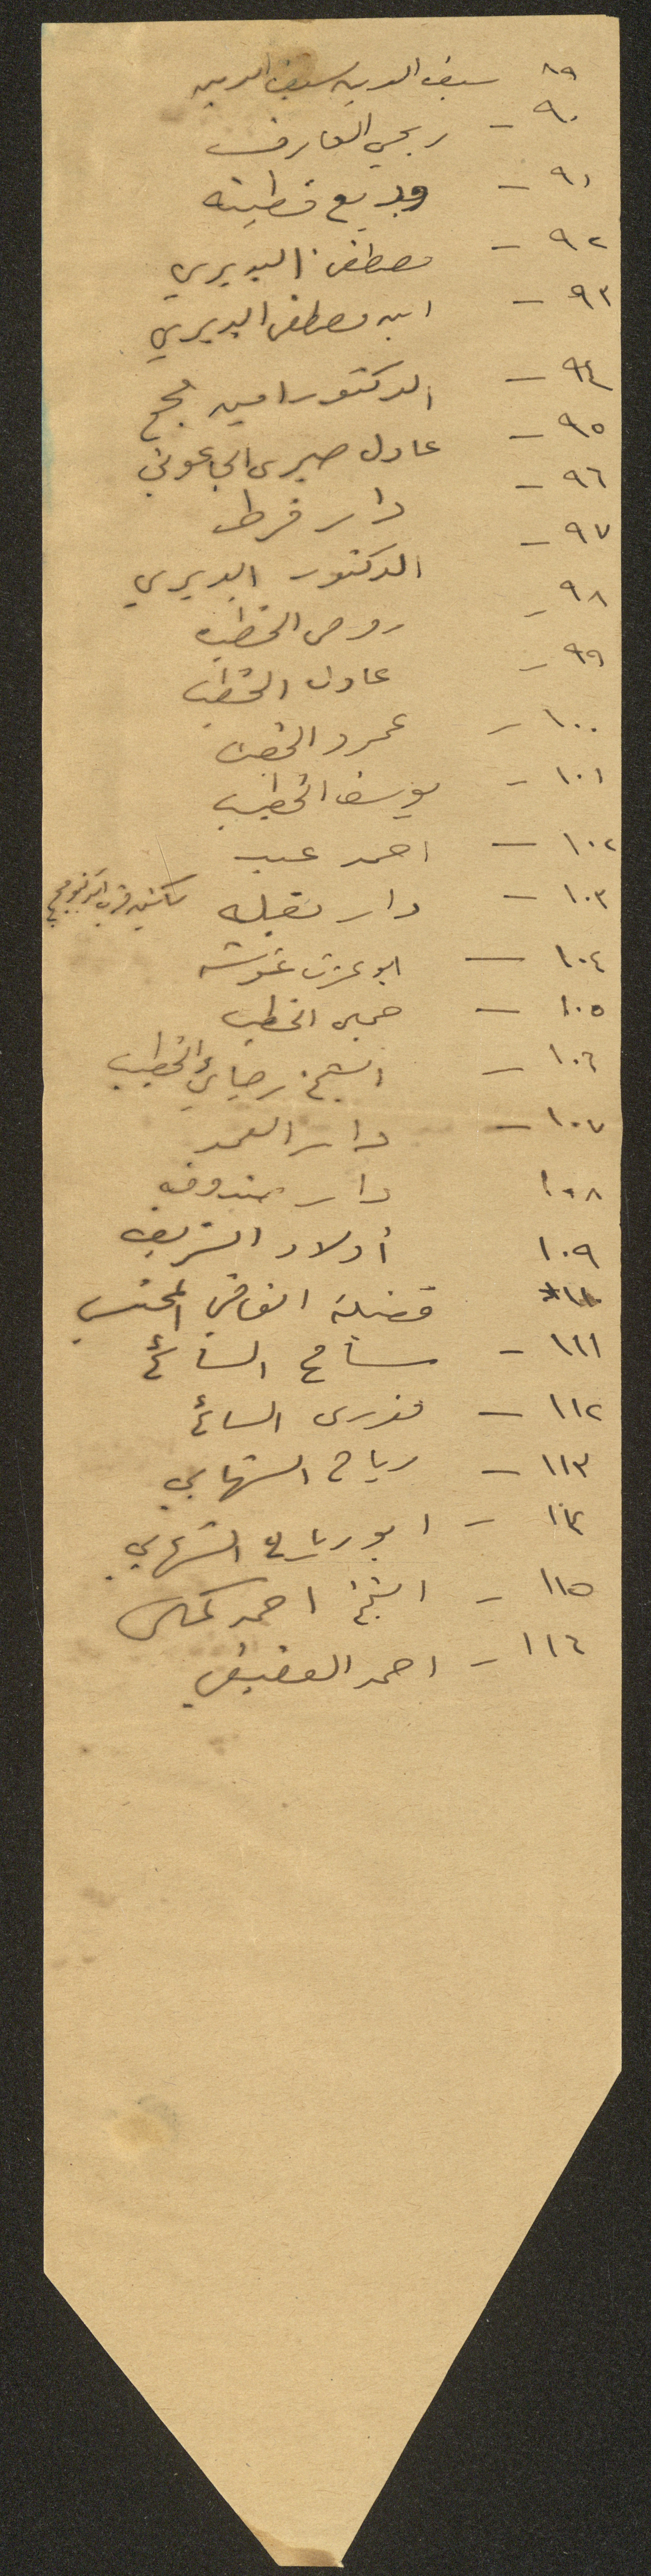 ٨٩ سيف الدين سيف الدين
٩٠ - ربحي العارف
٩١ - وديع قطينه
٩٢ - مصطفى البديري
٩٣ - ابن مصطفى البديري
٩٤ - الدكتور امين مجج
٩٥ - عادل صبري الجاعوني
٩٦ - دار قرط
٩٧ - الدكتور البديري
٩٨ - روحي الخطيب
٩٩ - عادل الخطيب
١٠٠ - عمرو الخطيب
١٠١ - يوسف الخطيب
١٠٢ - احمد عبيد
١٠٣ - دار نقيله ساكنين قرب الدكتور مجج
١٠٤ - ابو عزت غوشه
١٠٥ - صبحي الخطيب
١٠٦ - الشيخ رجائي الخطيب
١٠٧ - دار العمد
١٠٨ دار صندوقه
١٠٩ أولاد الشريف
١١٠ فضيلة القاضي المحتسب
١١١ - سامح السائح
١١٢ - فوزي السائح
١١٣ - رياح الشهابي
١١٤ - ابو رباح الشهابي
١١٥ - الشيخ احمد
١١٦ - احمد العفيفي